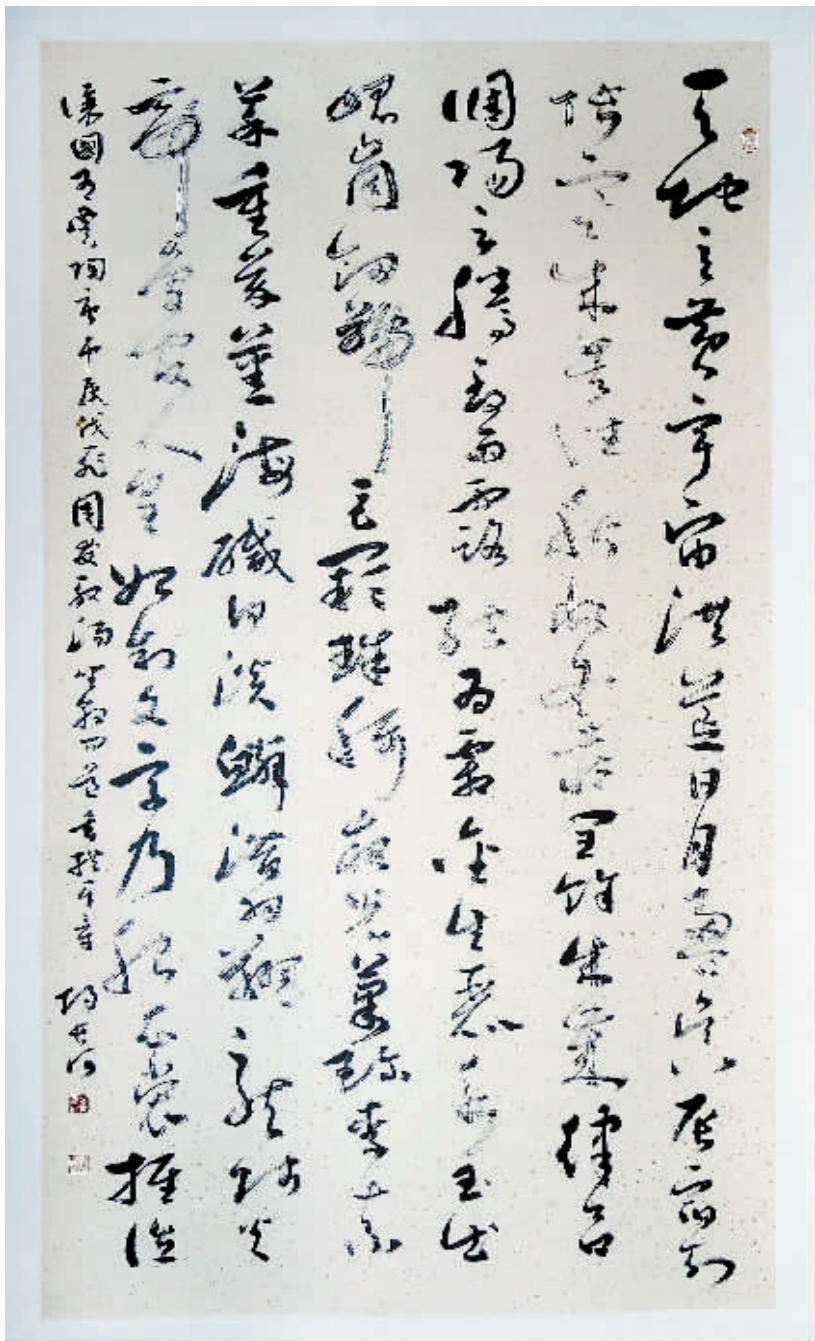 天地玄黃宇宙洪荒日月盈昃辰宿列
張寒來暑往秋收冬藏閏餘成歲律呂
調陽雲騰致雨露結為霜金生麗水玉出
崑崗劍號巨闕珠稱夜光菓珍李柰
菜重芥薑海鹹河淡鱗潛羽翔龍師火
帝鳥官人皇始制文字乃服衣裳推位
讓國有虞陶唐弔民伐罪周發殷湯坐朝問道垂拱平章